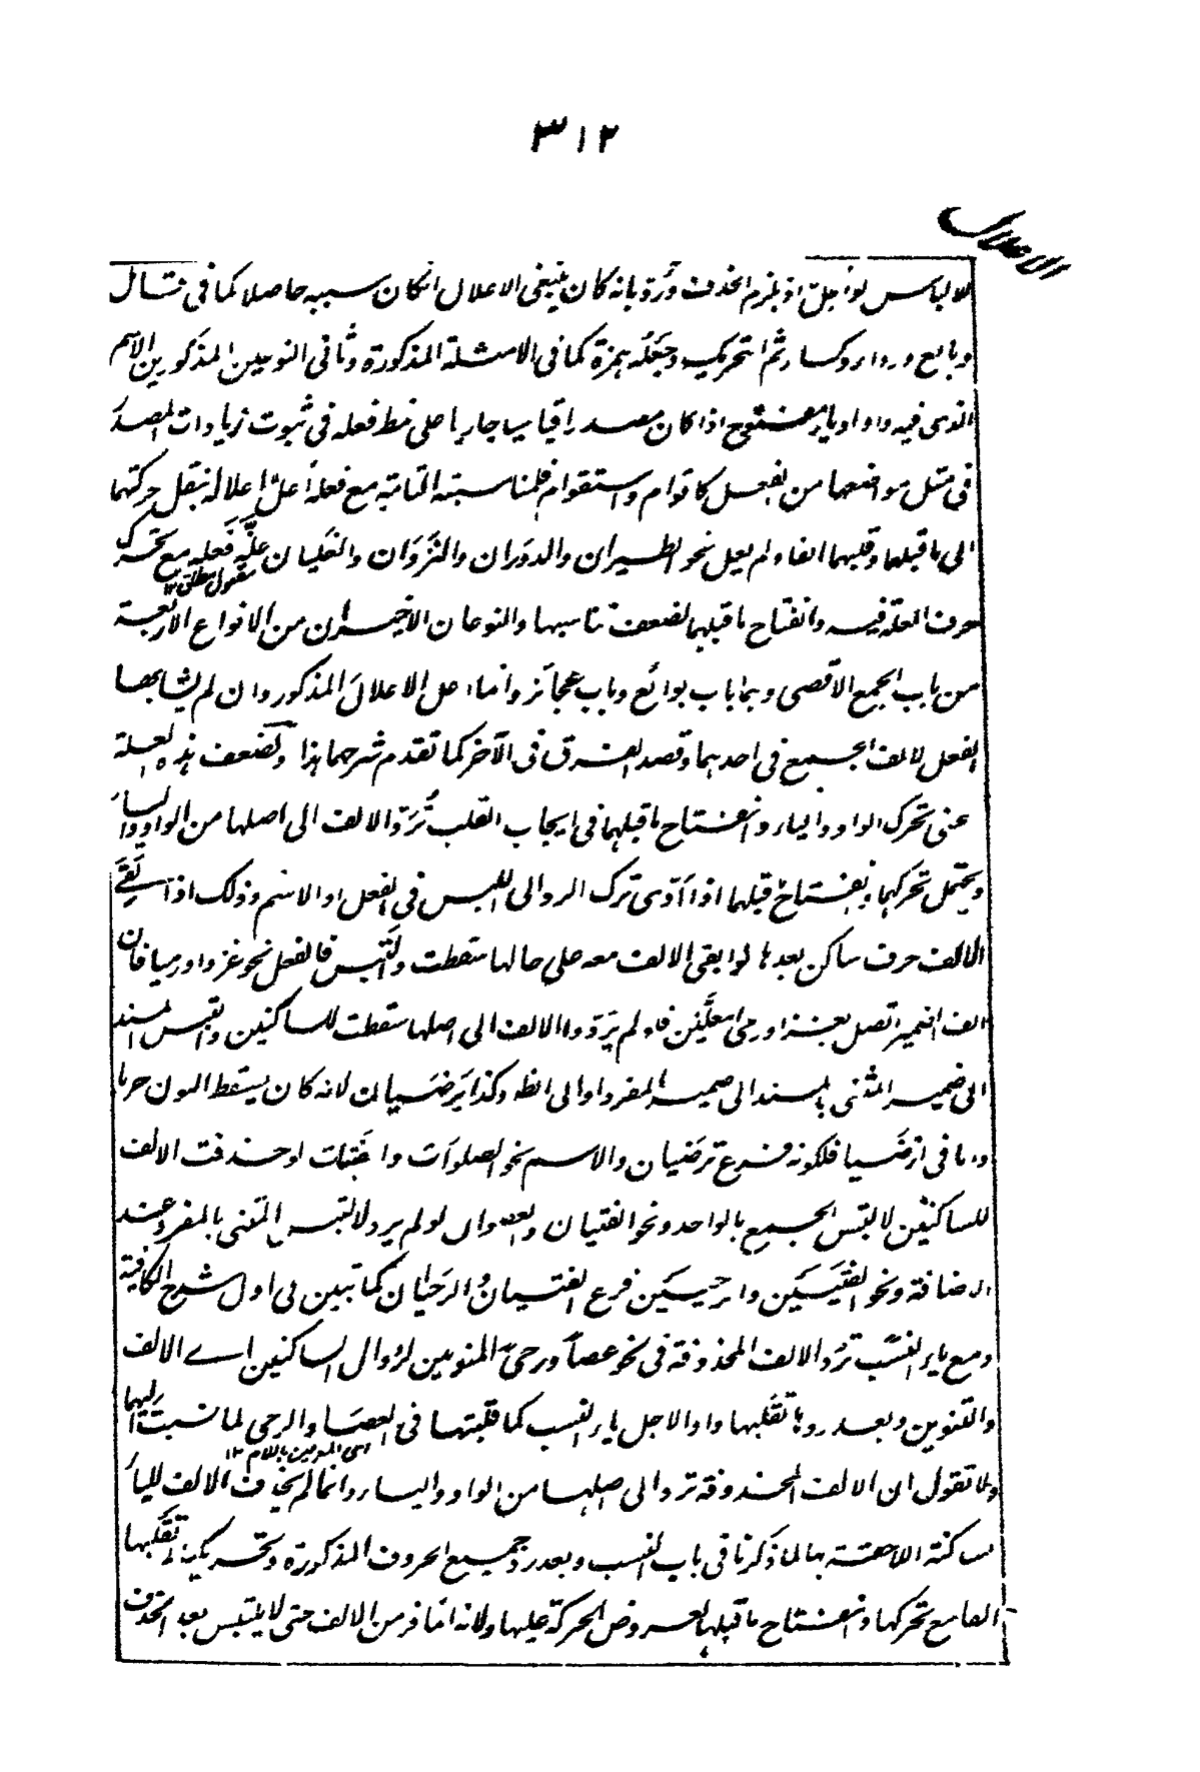 ٣١٢
الاعلال
للالباس لو اعل اذ يلزم الحذف ورد بانه كان ينبغى الاعلال ان كان سببه حاصلا كما فى قال
وبايع ورداء وكساء ثم التحريك وجعله همزة كما فى الامثلة المذكورة وثانى النوعين المذكورين الاسم
الذى فيه واو او ياء مفتوح اذا كان مصدرا قياسيا جاريا على نمط فعله فى ثبوت زيادات المصدر
فى مثل مواضعها من الفعل كاقوام واستقوام فلمناسبته التامة مع فعله أعل إعلاله بنقل حركتهما
الى ما قبلهما وقلبهما الفا ولم يعل نحو الطيران والدوران والنزوان والغليان علة فعله مع تحرك
مفعول مطلق ١٢
حرف العلة فيه وانفتاح ما قبلها لضعف تناسبها والنوعان الاخيران من الانواع الاربعة
من باب الجمع الاقصى وهما باب بوائع وباب عجائز وانما اعل الاعلال المذكور وان لم يشابها
الفعل لالف الجمع فى احدهما وقصد الفرق فى الآخر كما تقدم شرحها هذا ولضعف هذه العلة
اعنى تحرك الواو والياء وانفتاح ما قبلها فى ايجاب القلب ترد الالف الى اصلها من الواو والياء
ويحتمل تحركها وانفتاح ما قبلها اذا أدى ترك الرد الى اللبس فى الفعل او الاسم وذلك اذا لقى
الالف حرف ساكن بعدها لو ابقى الالف معه على حالها سقطت والتبس فالفعل نحو غزوا ورميا فان
الف الضمير اتصل بغزا ورمى معلين فلو لم يردوا الالف الى اصلها سقطت للساكنين والتبس المسند
الى ضمير المثنى بالمسند الى ضمير المفرد او الى الظاهر وكذا يرضيان لانه كان يسقط النون جزما
واما فى ارضيا فلكونه فرع ترضيان والاسم نحو الصلوات والفتيات لو حذفت الالف
للساكنين لالتبس الجمع بالواحد ونحو الفتيان والعصوان لو لم يرد لالتبس المثنى بالمفرد عند
الاضافة ونحو الفتيين والرحيين فرع الفتيان والرحيان كما تبين فى اول شرح الكافية
ومع ياء النسب ترد الالف المحذوفة فى نحو عصا ورحى المنونين لزوال الساكنين اى الالف
والتنوين وبعد ردها تقلبها واوا لاجل ياء النسب كما قلبتها فى العصا والرحى لما نسبت اليهما
اى المعرفين باللام ١٢
ولا تقول ان الالف المحذوفة ترد الى اصلها من الواو والياء وانما لم يحذف الالف للياء
الساكنة اللاحقة بها لما ذكرنا فى باب النسب وبعد رد جميع الحروف المذكورة وتحريكها لم تقلبها
الفا مع تحركها وانفتاح ما قبلها لعروض الحركة عليها ولانه انما فر من الالف حتى لا يلتبس بعد الحذف